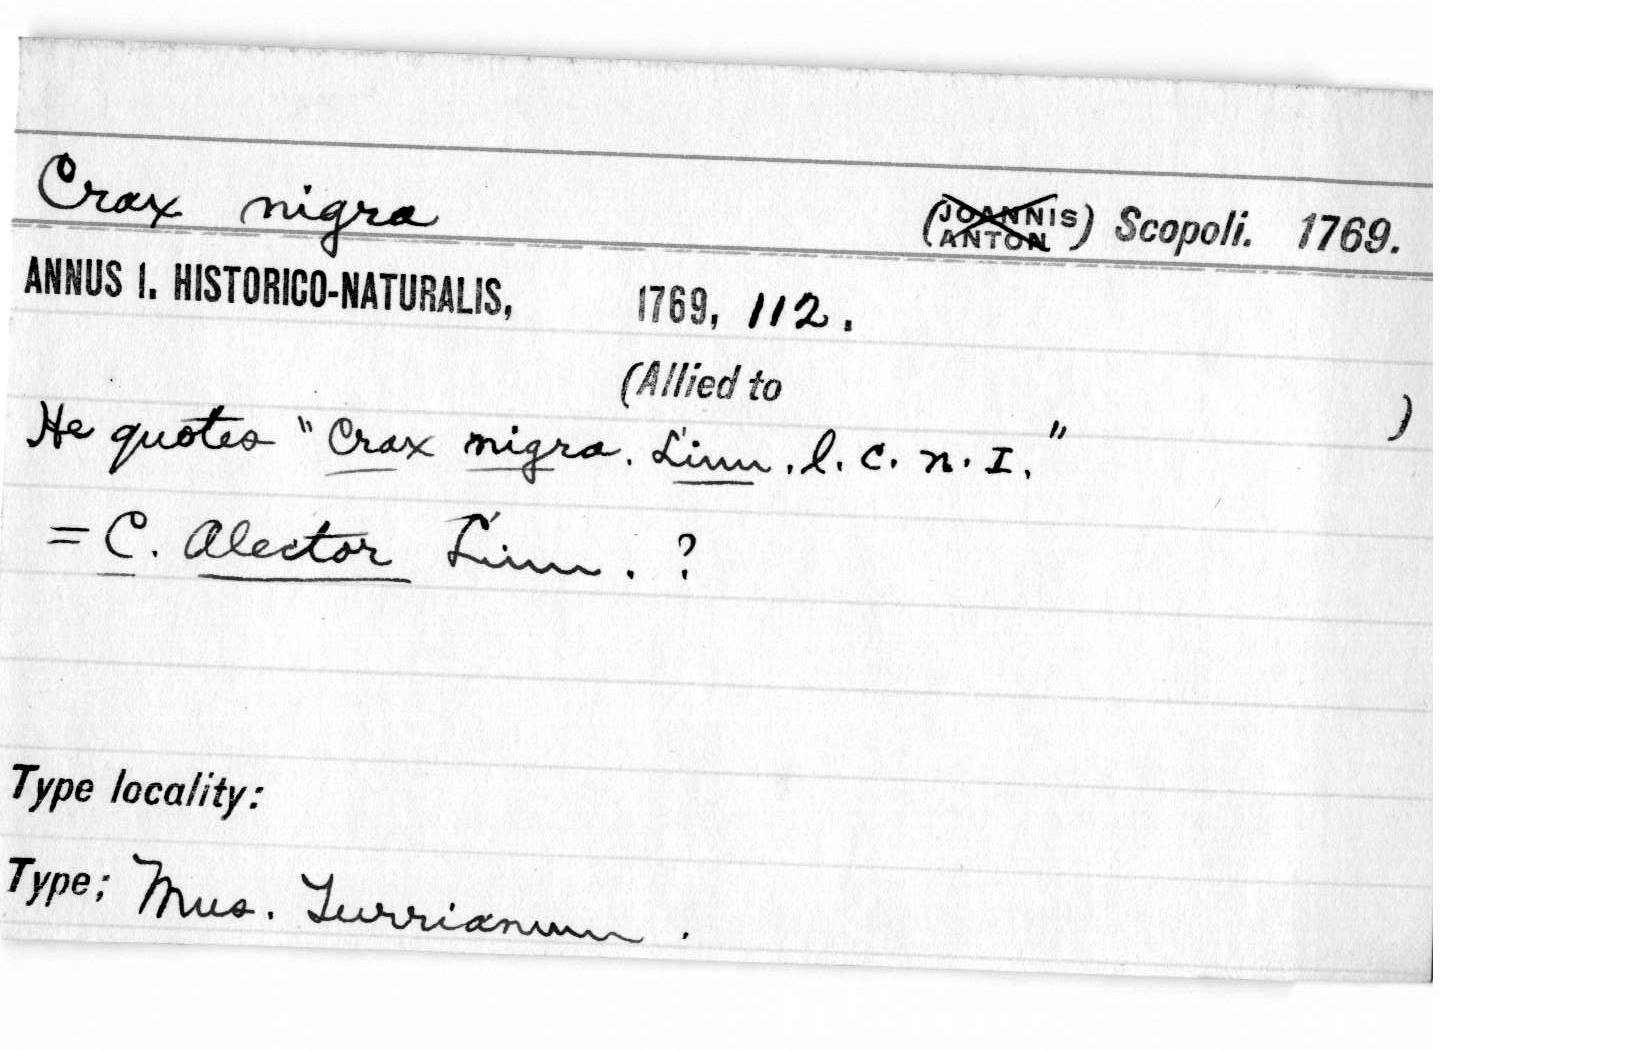 Crax nigra (JOANNIS ANTON) Scopoli. 1769.
ANNUS I. HISTORICO-NATURALIS, 1769, 112.
(Allied to )
He quotes "Crax nigra. Linn. l. c. n. I."
= C. Alector Linn. ?
Type locality:
Type; Mus. Turrianum.